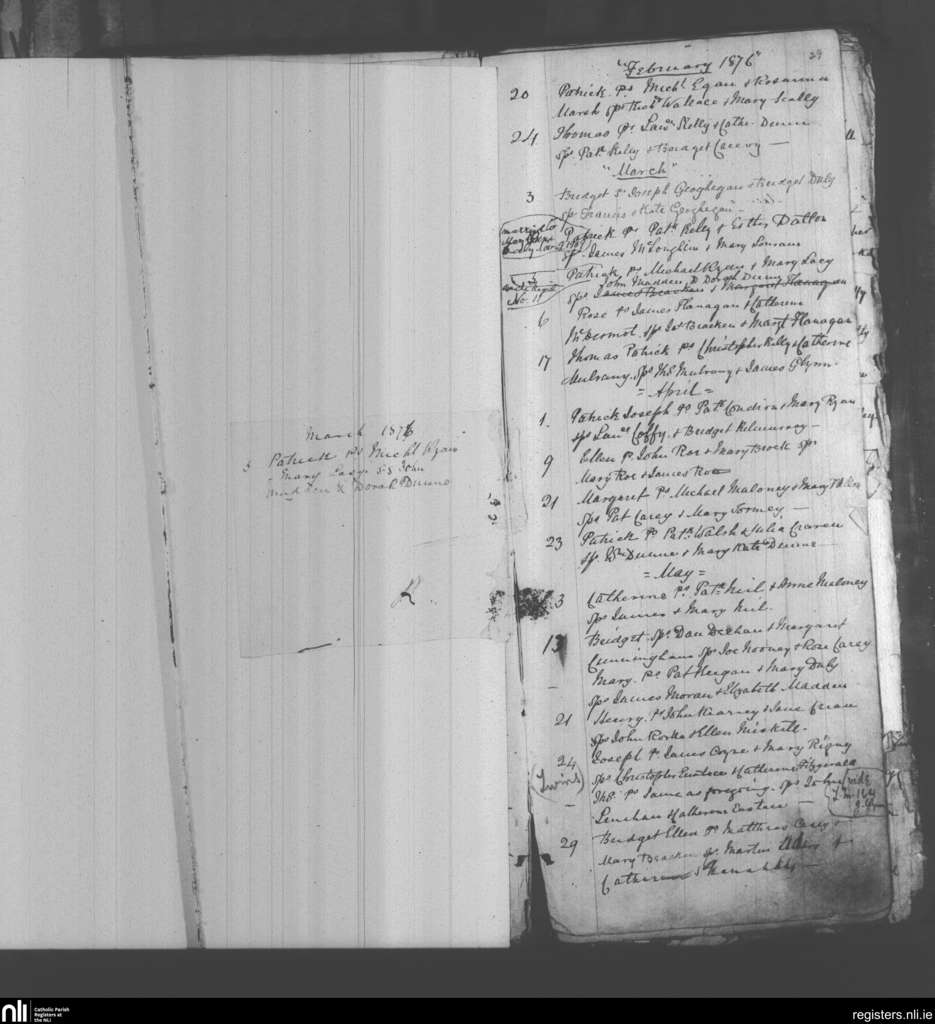 March 1876
3 Patrick ps Michl Ryan
& Mary Lacy Ss John
Madden & Dorah Dunne
R.
29
"February 1876"
20 Patrick ps Michl Egan & Rosanna
Marsh sps Robt Wallace & Mary Scally
24 Thomas ps Lawe Kelly & Cathe Dunne
sps Patk Kelly & Bridget
"March"
3 Bridget ps Joseph Geoghegan & Bridget Daly
sps Francis & Kate Geoghegan
married to
Patrick ps Patk Kelly & Esther Dalton
sps James McLoughlin & Mary
3 Patrick ps Michael Ryan & Mary Lacy
John Madden & Dorah Dunne
sps James Bracken & Margaret Flanagan
No. 11
6 Rose ps James Flanagan & Catherine
McDermot. sps Jas Bracken & Margt Flanagan
17 Thomas Patrick ps Christopher Kelly & Catherine
Mulvany. sps Ths Mulvany & James Glynn.
= April =
1. Patrick Joseph ps Patk Condron & Mary Ryan
sps Lawe Coffy & Bridget Kilmurray
9 Ellen ps John Roe & Mary Brock sps
Mary Roe & James Roe
21 Margaret ps Michael Maloney & Mary
sps Pat Carey & Mary Tormey
23 Patrick ps Patk Walsh & Julia Craven
sps Wm Dunne & Mary Kate Dunne
= May =
3 Catherine ps Patk Neil & Anne Maloney
sps James & Mary Neil.
13 Bridget. sps Dan Deehan & Margaret
Cunningham sps Joe Nooney & Rose Carey
Mary. ps Pat Keegan & Mary Daly
sps James Moran & Elizabeth Madden
21 Henry. ps John Kearney & Jane
sps John & Ellen Miskell.
24 Joseph ps James Coyne & Mary Rigny
(Twins) sps Christopher Eustace & Catherine Fitzgerald
Ths. ps Same as foregoing. sps John
Lenehan & Catherine Eustace
vide
29 Bridget Ellen ps Matthias Casey &
Mary Bracken sps Martin &
Catherine Shanahan
nli
Catholic Parish
Registers at
the NLI
registers.nli.ie